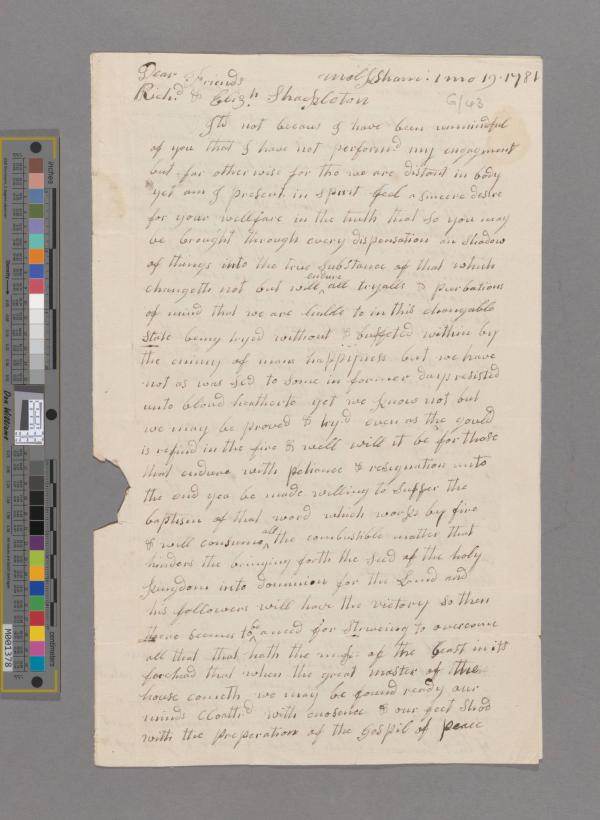 Dear Friends
Richd & Elizth Shackleton
1 mo 19. 1781
6/43
Its not becaus I have been unmindful
of you that I have not performd my engagment
but far otherwise for tho we are distant in body
yet am I present in spirit feel a sincere desire
for your wellfare in the truth that so you may
be brought through every dispensation an shadow
of things into the true substance of that which
changeth not but will endure all tryalls & purbations
of mind that we are liable to in this changable
state being tryd without & buffeted within by
the enimy of mans happyness but we have
not as was sed to some in former days resisted
unto blood heatherto yet we know not but
we may be proved & try'd even as the gould
is refind in the fire & well will it be for those
that endure with patiance & resignation unto
the end yea be made willing to suffer the
baptism of that word which works by fire
& will consume all the combustible matter that
hinders the bringing forth the seed of the holy
kingdom into dominion for the Lamb and
his followers will have the victory so then
there becomes to be a need for striveing to overcome
all that that hath the mark of the beast in its
forehead that when the great master of the
house cometh we may be found ready our
minds cloathd with & our feet shod
with the preperation of the gospil of peace